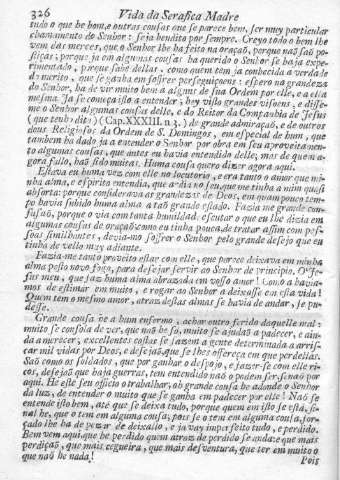 326 Vida da Serafica Madre
tudo o que he bom, e outras cousas que se parece bem, ser muy particular
chamamento do Senhor: seja bendito por sempre. Creyo todo o bem lhe
vem das merces, que o Senhor lhe ha feito na oraçaõ, porque naõ saõ po-
stiças; porque ja em algumas cousas ha querido o Senhor se haja expe-
rimentado, porque sahio dellas, como quem tem ja conhecida a verdade
do merito, que se ganha em soffrer perseguiçoens: espero na grandeza
do Senhor, ha de vir muito bem a alguns de sua Ordem por elle, e a ella
mesma. Ja se começa isto a entender; hey visto grandes visoens, e disse-
me o Senhor algumas cousas delle, e do Reitor da Companhia de Jesus
(que tenho dito) (Cap. XXXIII. n. 3.) de grande admiraçaõ, e de outros
dous Religiosos da Ordem de S. Domingos, em especial de hum, que
tambem ha dado ja a entender o Senhor por obra em seu aproveitamen-
to algumas cousas, que antes eu havia entendido delle, mas de quem a-
gora fallo, haõ sido muitas. Huma cousa quero dizer agora aqui.
Estava eu huma vez com elle no locutorio, e era tanto o amor que mi-
nha alma, e espirito entendia, que ardia no seu, que me tinha a mim quasi
absorta: porque considerava as grandezas de Deos, em quam pouco tem-
po havia subido huma alma a taõ grande estado. Fazia me grande con-
fusaõ, porque o via com tanta humildade escutar o que eu lhe dizia em
algumas cousas de oraçaõ, como eu tinha pouca de tratar assim com pes-
soas similhantes, devia-mo soffrer o Senhor pelo grande desejo que eu
tinha de vello muy adiante.
Fazia-me tanto proveito estar com elle, que parece deixava em minha
alma posto novo fogo, para desejar servir ao Senhor de principio. O' Je-
sus meu, que faz huma alma abrazada em vosso amor! Como a havia-
mos de estimar em muito, e rogar ao Senhor a deixasse em esta vida!
Quem tem o mesmo amor, atraz destas almas se havia de andar, se pu-
desse.
Grande cousa he a hum enfermo, achar outro ferido daquelle mal:
muito se consola de ver, que naõ he só, muito se ajudaõ a padecer, e ain-
da a merecer, excellentes costas se fazem a gente determinada a arris-
car mil vidas por Deos, e desejaõ que se lhes offereça em que perdellas.
Saõ como os soldados, que por ganhar o despojo, e fazer-se com elle ri-
cos, desejaõ que haja guerras, tem entendido naõ o podem ser, se naõ por
aqui. He este seu officio o trabalhar, oh grande cousa he adonde o Senhor
dá luz, de entender o muito que se ganha em padecer por elle! Naõ se
entende isto bem, até que se deixa tudo, porque quem em isto se está, si-
nal he, que o tem em alguma cousa; pois se o tem em alguma cousa, for-
çado lhe ha de pezar de deixallo, e ja vay imperfeito tudo, e perdido.
Bem vem aqui, que he perdido quem atraz de perdido se anda: e que mais
perdiçaõ, que mais cegueira, que mais desventura, que ter em muito o
que naõ he nada!
Pois